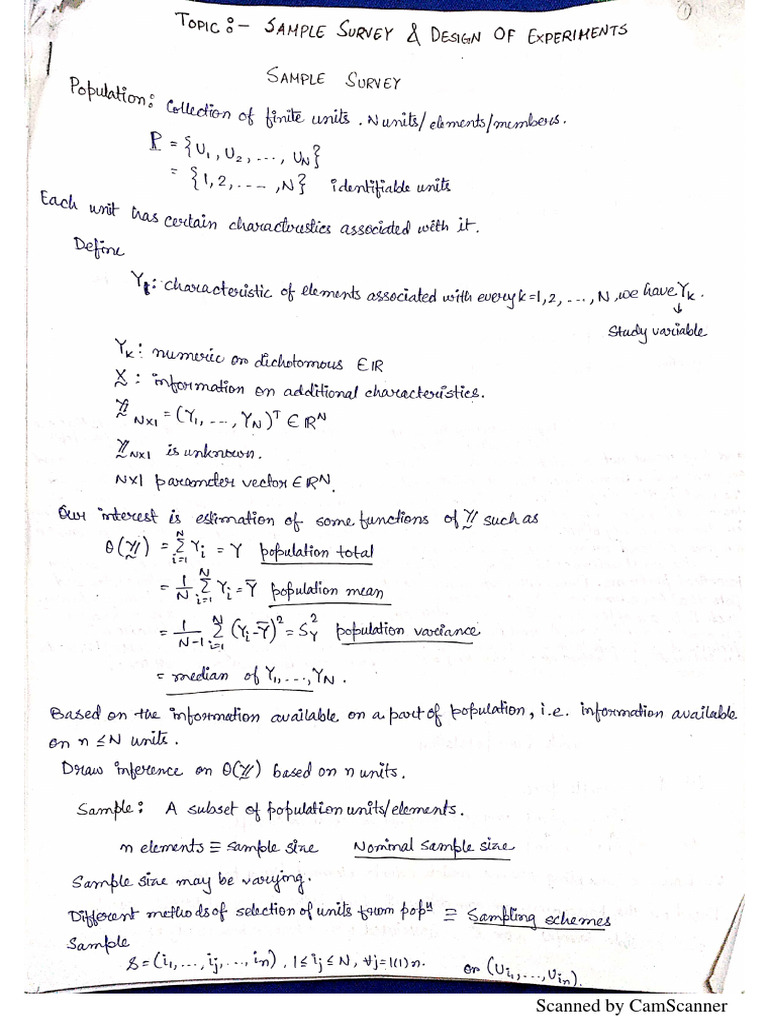 ①
TOPIC :- SAMPLE SURVEY & DESIGN OF EXPERIMENTS
SAMPLE SURVEY
Population: Collection of finite units. N units/elements/members.
P = {U₁, U₂, ..., U_N}
= {1, 2, ..., N} identifiable units
Each unit has certain characteristics associated with it.
Define
Y_k: characteristic of elements associated with every k=1,2, ..., N, we have Y_k.
↓
Study variable
Y_k: numeric or dichotomous ∈ ℝ
X: information on additional characteristics.
Y_{N×1} = (Y₁, ..., Y_N)ᵀ ∈ ℝᴺ
Y_{N×1} is unknown.
N×1 parameter vector ∈ ℝᴺ.
Our interest is estimation of some functions of Y such as
θ(Y) = Σ_{i=1}^{N} Y_i = Y population total
= 1/N Σ_{i=1}^{N} Y_i = Ȳ population mean
= 1/(N-1) Σ_{i=1}^{N} (Y_i - Ȳ)² = S_Y² population variance
= median of Y₁, ..., Y_N.
Based on the information available on a part of population, i.e. information available
on n ≤ N units.
Draw inference on θ(Y) based on n units.
Sample: A subset of population units/elements.
n elements ≡ sample size Nominal sample size
Sample size may be varying.
Different methods of selection of units from popⁿ ≡ Sampling schemes
Sample
s = (i₁, ..., i_j, ..., i_n), 1 ≤ i_j ≤ N, ∀j=1(1)n. or (U_{i₁}, ..., U_{i_n}).
Scanned by CamScanner